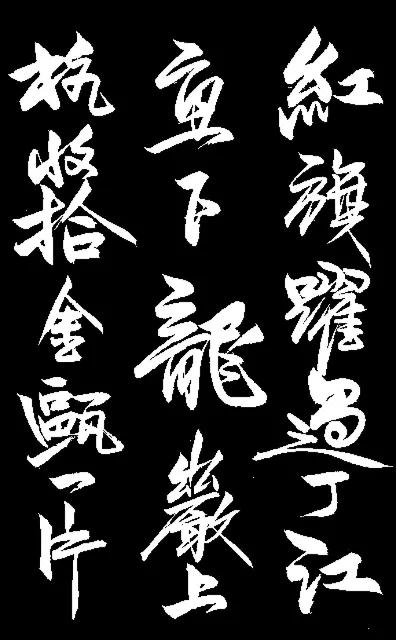 紅旗躍過丁江
直下龍巖上
杭收拾金甌一片